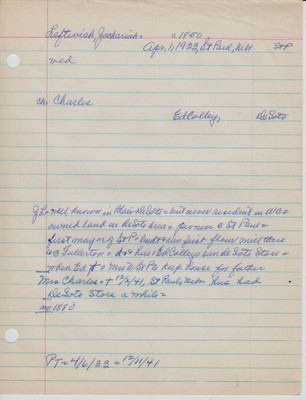 Leftwich, Zachariah - c. 1850
Apr. 1, 1922, St Paul, Neb StP
med
ch: Charles
Ed Colley, DeSoto
Z L = well known in Blair-DeSoto = but never resident in W Co
owned land in DeSoto area = pioneer @ St Paul =
first mayor of StP = built & ran first flour mill there
& @ Fullerton = Ed Colley ran DeSoto Store =
when Ed = to St P to keep house for father
Mrs Charles = † 12/2/41, St Paul, Neb = Hus had
DeSoto Store a while =
mg 1880
PT = 4/6/22 = 12/11/41